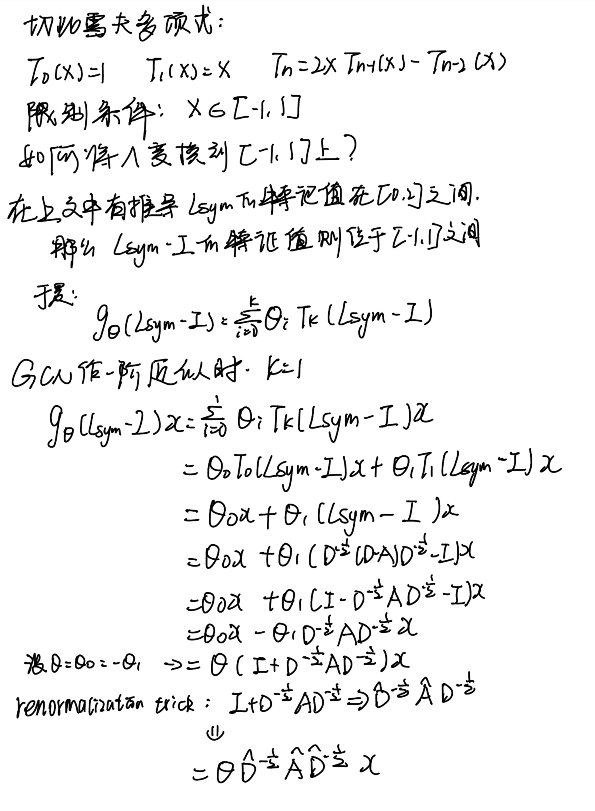 切比雪夫多项式:
T₀(x)=1 T₁(x)=x Tn=2x Tn-1(x)-Tn-2(x)
限制条件: x∈[-1,1]
如何将λ变换到[-1,1]上?
在上文中有推导Lsym的特征值在[0,2]之间.
那么 Lsym-I的特征值则位于[-1,1]之间
于是:
gθ(Lsym-I)=∑_{i=0}^{k} θi Tk(Lsym-I)
GCN作一阶近似时. K=1
gθ(Lsym-I)x=∑_{i=0}^{1} θi Tk(Lsym-I)x
=θ₀T₀(Lsym-I)x+θ₁T₁(Lsym-I)x
=θ₀x+θ₁(Lsym-I)x
=θ₀x+θ₁(D^{-1/2}(D-A)D^{-1/2}-I)x
=θ₀x+θ₁(I-D^{-1/2}AD^{-1/2}-I)x
=θ₀x-θ₁D^{-1/2}AD^{-1/2}x
设θ=θ₀=-θ₁ →=θ(I+D^{-1/2}AD^{-1/2})x
renormalization trick: I+D^{-1/2}AD^{-1/2}⇒D̂^{-1/2}ÂD^{-1/2}
⇓
=θD̂^{-1/2}ÂD̂^{-1/2}x